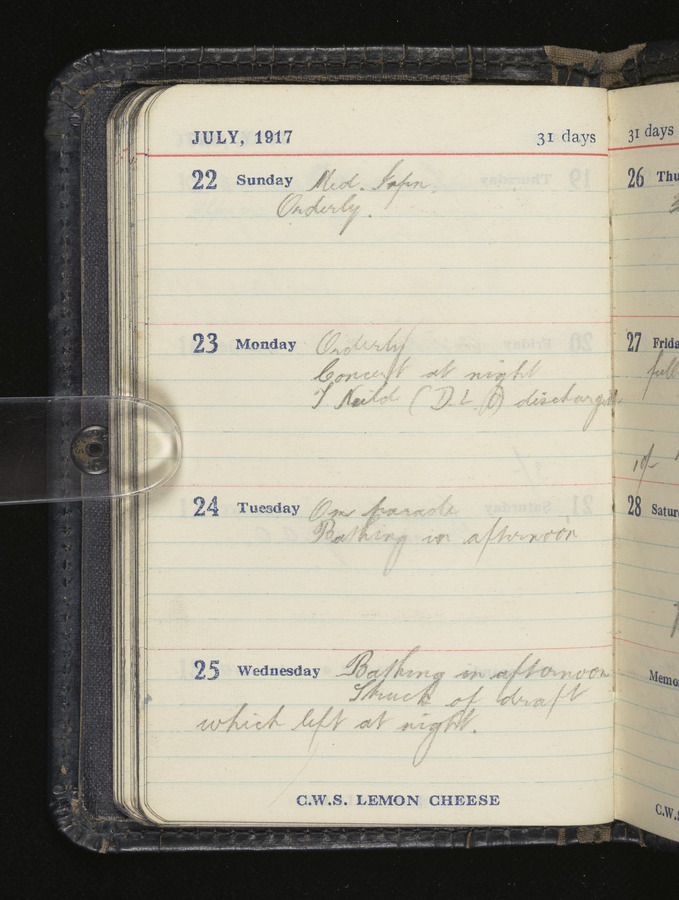 JULY, 1917 31 days
22 Sunday Med. Inspn.
Orderly.
23 Monday Orderly
Concert at night
T Neild (D.L.I) discharged
24 Tuesday On parade
Bathing in afternoon
25 Wednesday Bathing in afternoon
Struck of draft
which left at night.
C.W.S. LEMON CHEESE
31 days
26 Thu
27 Frida
full
28 Satur
Memo
C.W.S